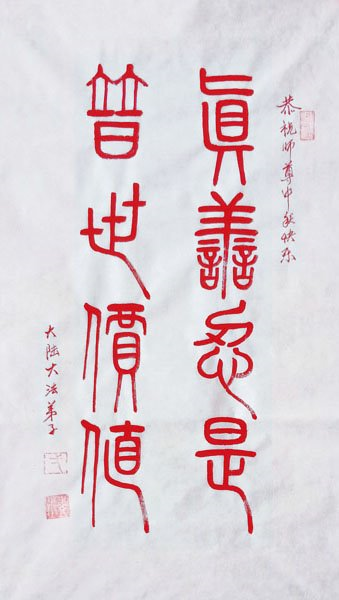 恭祝师尊中秋快乐
眞善忍是
普世價值
大陆大法弟子